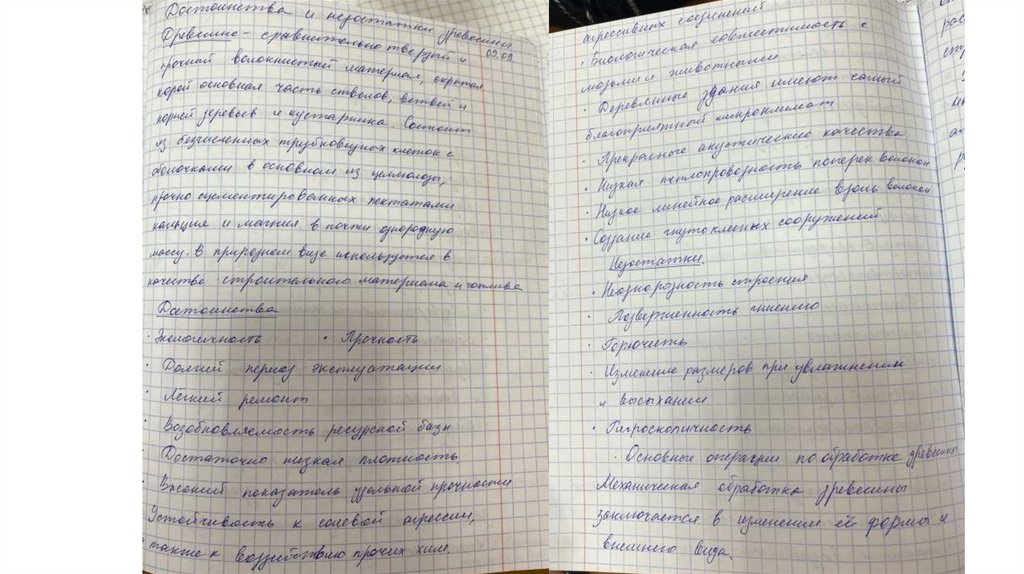 Достоинства и недостатки древесины
09.09.
Древесина - сравнительно твердый и
прочный волокнистый материал, скрытая
корой основная часть стволов, ветвей и
корней деревьев и кустарника. Состоит
из бесчисленных трубковидных клеток с
оболочками в основном из целлюлозы,
прочно сцементированных пектатами
кальция и магния в почти однородную
массу. В природном виде используется в
качестве строительного материала и топлива
Достоинства
· Экологичность · Прочность
· Долгий период эксплуатации
· Лёгкий ремонт
· Возобновляемость ресурсной базы
· Достаточно низкая плотность
· Высокий показатель удельной прочности
Устойчивость к солевой агрессии,
а также к воздействию прочих хим.
агрессивных соединений
· Биологическая совместимость с
людьми и животными
· Деревянные здания имеют самый
благоприятный микроклимат
· Прекрасные акустические качества
· Низкая теплопроводность поперек волокон
· Низкое линейное расширение вдоль волокон
· Создание гнутоклееных сооружений
Недостатки.
· Неоднородность строения
· Подверженность гниению
· Горючесть
· Изменение размеров при увлажнении
и высыхании
· Гигроскопичность
· Основные операции по обработке древесины
Механическая обработка древесины
заключается в изменении её формы и
внешнего вида.